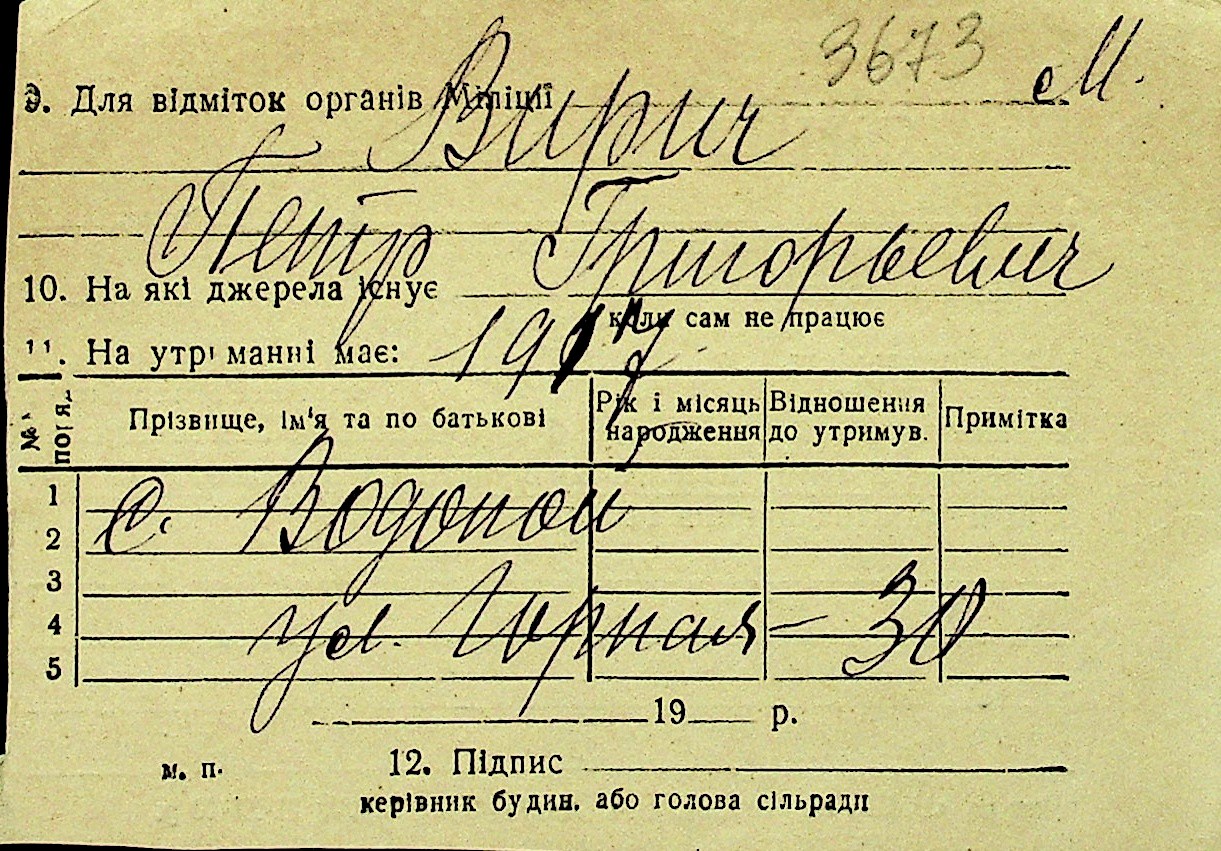 3673 М.
9. Для відміток органів Міліції
Вирич
Петр Григорьевич
10. На які джерела існує
коли сам не працює
1917
11. На утриманні має:
№ по п. Прізвище, ім'я та по батькові Рік і місяць народження Відношення до утримув. Примітка
1
с. Водопой
2
3
ул. Горная - 30
4
5
19 р.
м. п. 12. Підпис
керівник будин. або голова сільради